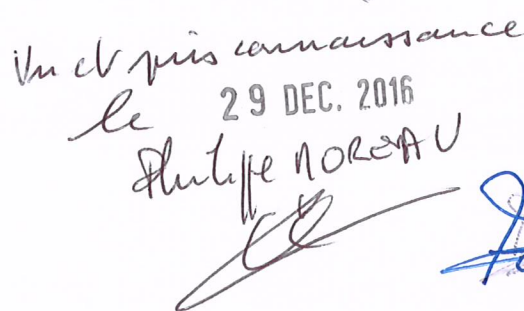 Vu et pris connaissance
le 29 DEC. 2016
Philippe MOREAU